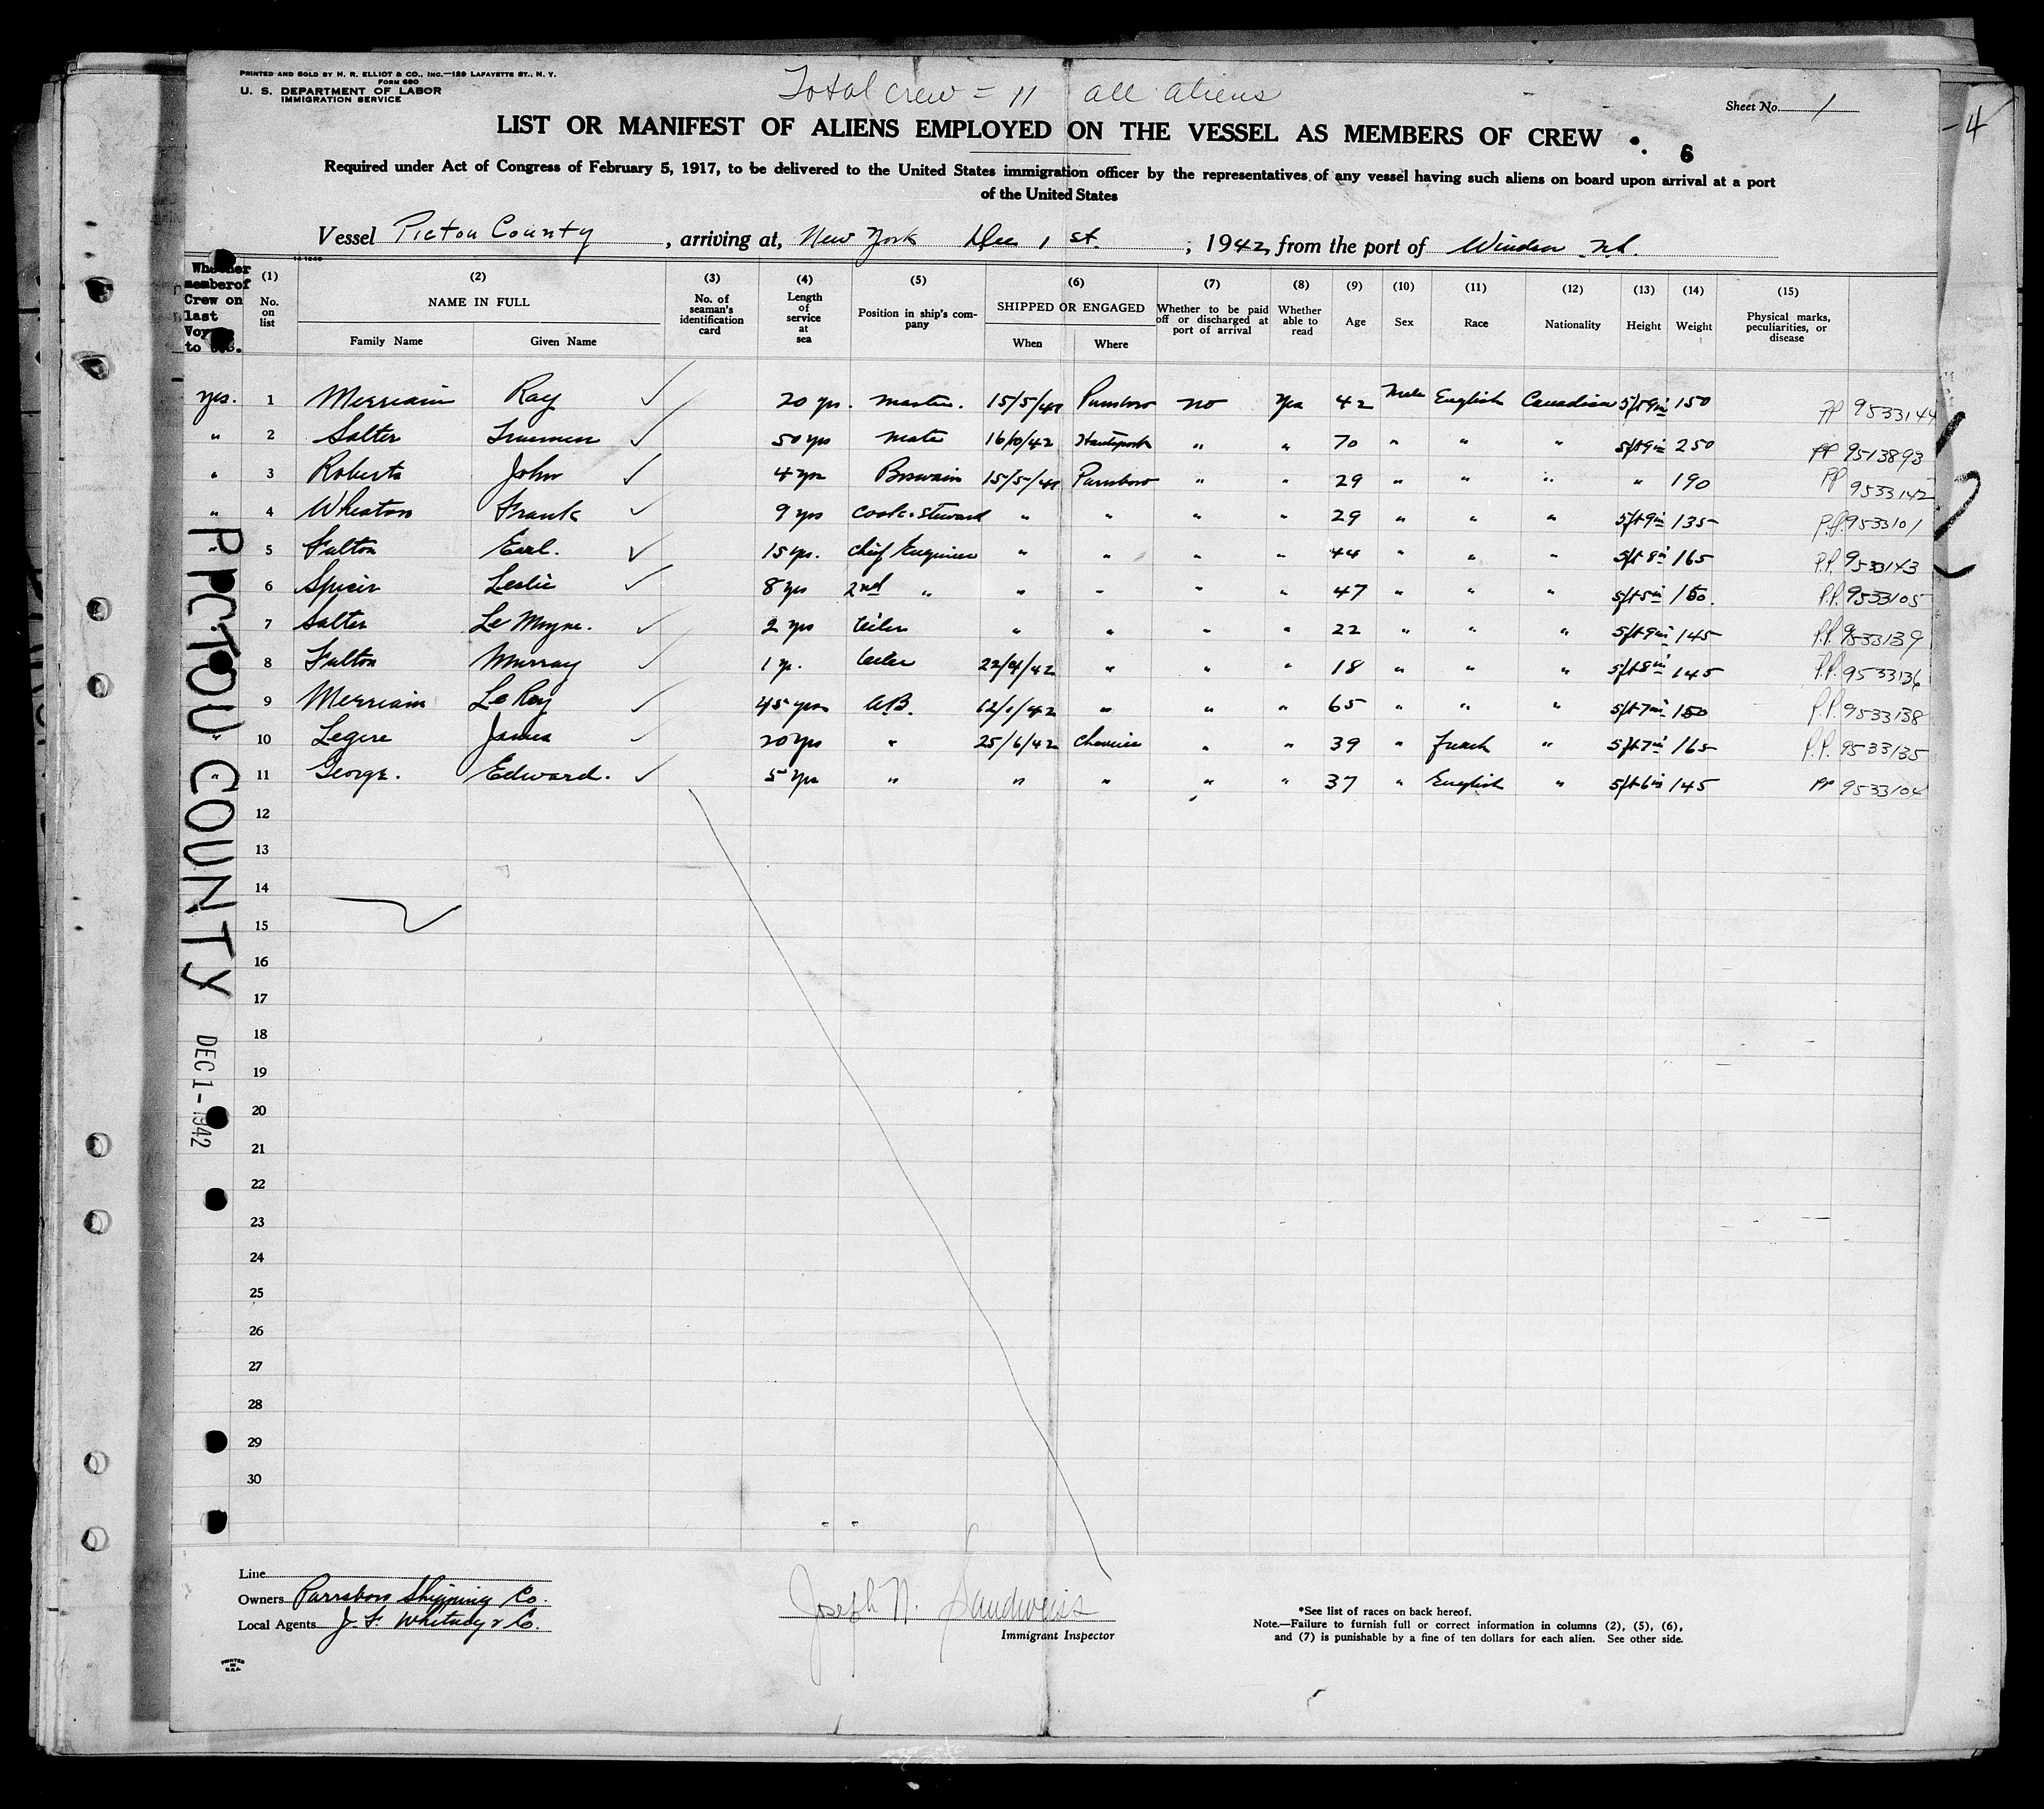 PRINTED AND SOLD BY H. R. ELLIOT & CO., INC.—129 LAFAYETTE ST., N. Y.
FORM 680
U. S. DEPARTMENT OF LABOR
IMMIGRATION SERVICE
Total crew = 11 all aliens
Sheet No. 1
-4
LIST OR MANIFEST OF ALIENS EMPLOYED ON THE VESSEL AS MEMBERS OF CREW
6
Required under Act of Congress of February 5, 1917, to be delivered to the United States immigration officer by the representatives of any vessel having such aliens on board upon arrival at a port
of the United States
Vessel Pictou County, arriving at, New York Dec 1 st., 1942, from the port of Windsor N.S.
Whether member of Crew on last Voyage to U.S.
(1) No. on list
(2) NAME IN FULL Family Name Given Name
(3) No. of seaman's identification card
(4) Length of service at sea
(5) Position in ship's company
(6) SHIPPED OR ENGAGED When Where
(7) Whether to be paid off or discharged at port of arrival
(8) Whether able to read
(9) Age
(10) Sex
(11) Race
(12) Nationality
(13) Height
(14) Weight
(15) Physical marks, peculiarities, or disease
yes. 1 Merriam Ray ✓ 20 yrs. Master. 15/5/41 Parrsboro no Yes 42 Male English Canadian 5ft9in 150 PP 9533144
" 2 Salter Truemen ✓ 50 yrs Mate 16/10/42 Hantsport " " 70 " " " 5ft9in 250 PP 9513893
" 3 Roberts John ✓ 4 yrs Boswain 15/5/41 Parrsboro " " 29 " " " " 190 PP 9533142
" 4 Wheaton Frank ✓ 9 yrs Cook & Steward " " " " 29 " " " 5ft9in 135 P.P. 9533101
" 5 Fulton Earl. ✓ 15 yrs. Chief Engineer " " " " 44 " " " 5ft8in 165 P.P. 9533143
" 6 Spicer Leslie ✓ 8 yrs 2nd " " " " " 47 " " " 5ft5in 150. P.P. 9533105
" 7 Salter Le Moyne. ✓ 2 yrs Oiler " " " " 22 " " " 5ft9in 145 P.P. 9533139
" 8 Fulton Murray ✓ 1 yr. Oiler 22/4/42 " " " 18 " " " 5ft8in 145 P.P. 9533136
" 9 Merriam LeRoy ✓ 45 yrs A.B. 12/1/42 " " " 65 " " " 5ft7in 150 P.P. 9533138
" 10 Legere James ✓ 20 yrs " 25/6/42 Cheverie " " 39 " French " 5ft7in 165 P.P. 9533135
" 11 George. Edward. ✓ 5 yrs " " " " " 37 " English " 5ft6in 145 PP 9533104
12
13
14
15
16
17
18
19
20
21
22
23
24
25
26
27
28
29
30
PICTOU COUNTY
DEC 1 - 1942
1
2
Line
Owners Parrsboro Shipping Co.
Local Agents J. F Whitney & Co.
Joseph N. Sandweiss
Immigrant Inspector
*See list of races on back hereof.
Note.—Failure to furnish full or correct information in columns (2), (5), (6),
and (7) is punishable by a fine of ten dollars for each alien. See other side.
PRINTED
IN
U.S.A.